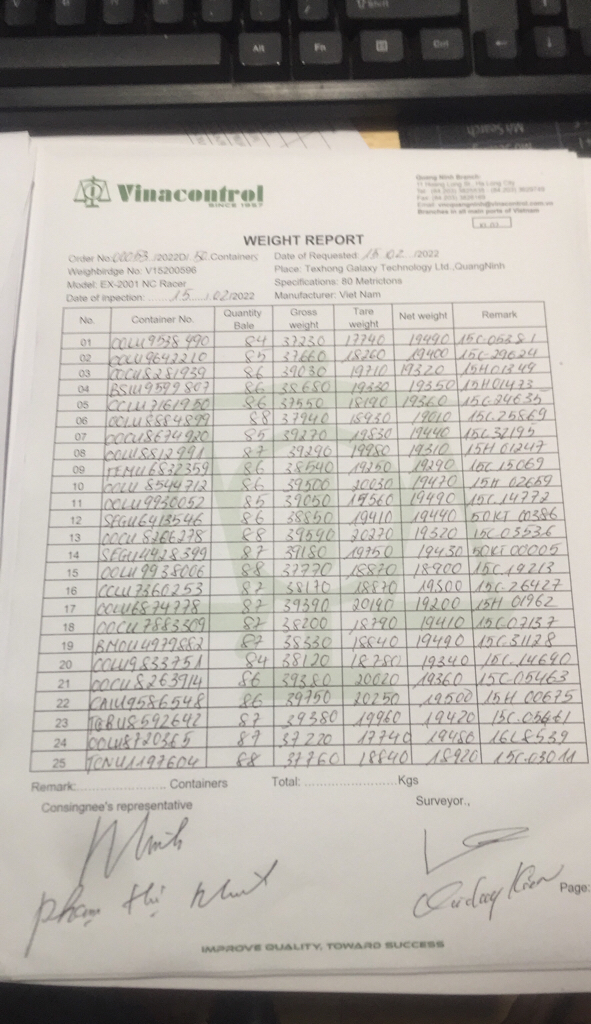 Alt
Fn
Ctrl
Vinacontrol
SINCE 1957
Quang Ninh Branch:
Branches in all main parts of Vietnam
WEIGHT REPORT
Order No: 00053 /2022O/ 50 Containers Date of Requested: 15 02 /2022
Weighbirdge No: V15200596 Place: Texhong Galaxy Technology Ltd.,QuangNinh
Model: EX-2001 NC Racer Specifications: 80 Metrictons
Date of inpection: 15 / 02/2022 Manufacturer: Viet Nam
No. Container No. Quantity Bale Gross weight Tare weight Net weight Remark
01 OOLU9538490 84 37230 17740 19490 15C-05381
02 OOLU9642210 85 37660 18260 19400 15C-29624
03 OOCU8281939 86 39030 19710 19320 15H01349
04 BSIU9599807 86 38680 19330 19350 15H01473
05 CCLU7161950 86 37550 18190 19360 15C-24635
06 OOLU8884899 88 37940 18930 19010 15C.25869
07 OOCU8674920 85 39270 19830 19440 15C32195
08 87 39290 19980 19310 15H.01247
09 TEMU6832359 86 38540 19250 19290 15C 15069
10 OOLU8544712 86 39500 20030 19470 15H 02659
11 OOLU9930052 85 39050 19560 19490 15C.14772
12 SEGU6413546 86 38850 19410 19440 50KT 00386
13 OOCU 8266278 88 39590 20270 19320 15C-03536
14 SEGU4428399 87 39180 19750 19430 50KT 00005
15 OOLU9938006 88 37770 18870 18900 15C.19213
16 CCLU7360253 87 38170 18870 19300 15C.26427
17 OOLU6874778 87 39390 20190 19200 15H 01962
18 OOCU7883309 87 38200 18790 19410 15C07137
19 BMOU4979882 87 38330 18840 19490 15C31128
20 OOLU9833751 84 38120 18780 19340 15C-14690
21 OOCU8263914 86 39380 20020 19360 15C-05463
22 CAIU9586548 86 39750 20250 19500 15H 00675
23 TGBU8592642 87 39380 19960 19420 15C.05461
24 OOLU8720365 87 37220 17740 19480 16L8539
25 TCNU1197604 88 37760 18840 18920 15C-03011
Remark: Containers Total: Kgs
Consingnee's representative Surveyor.,
Phạm thị Page:
IMPROVE QUALITY, TOWARD SUCCESS